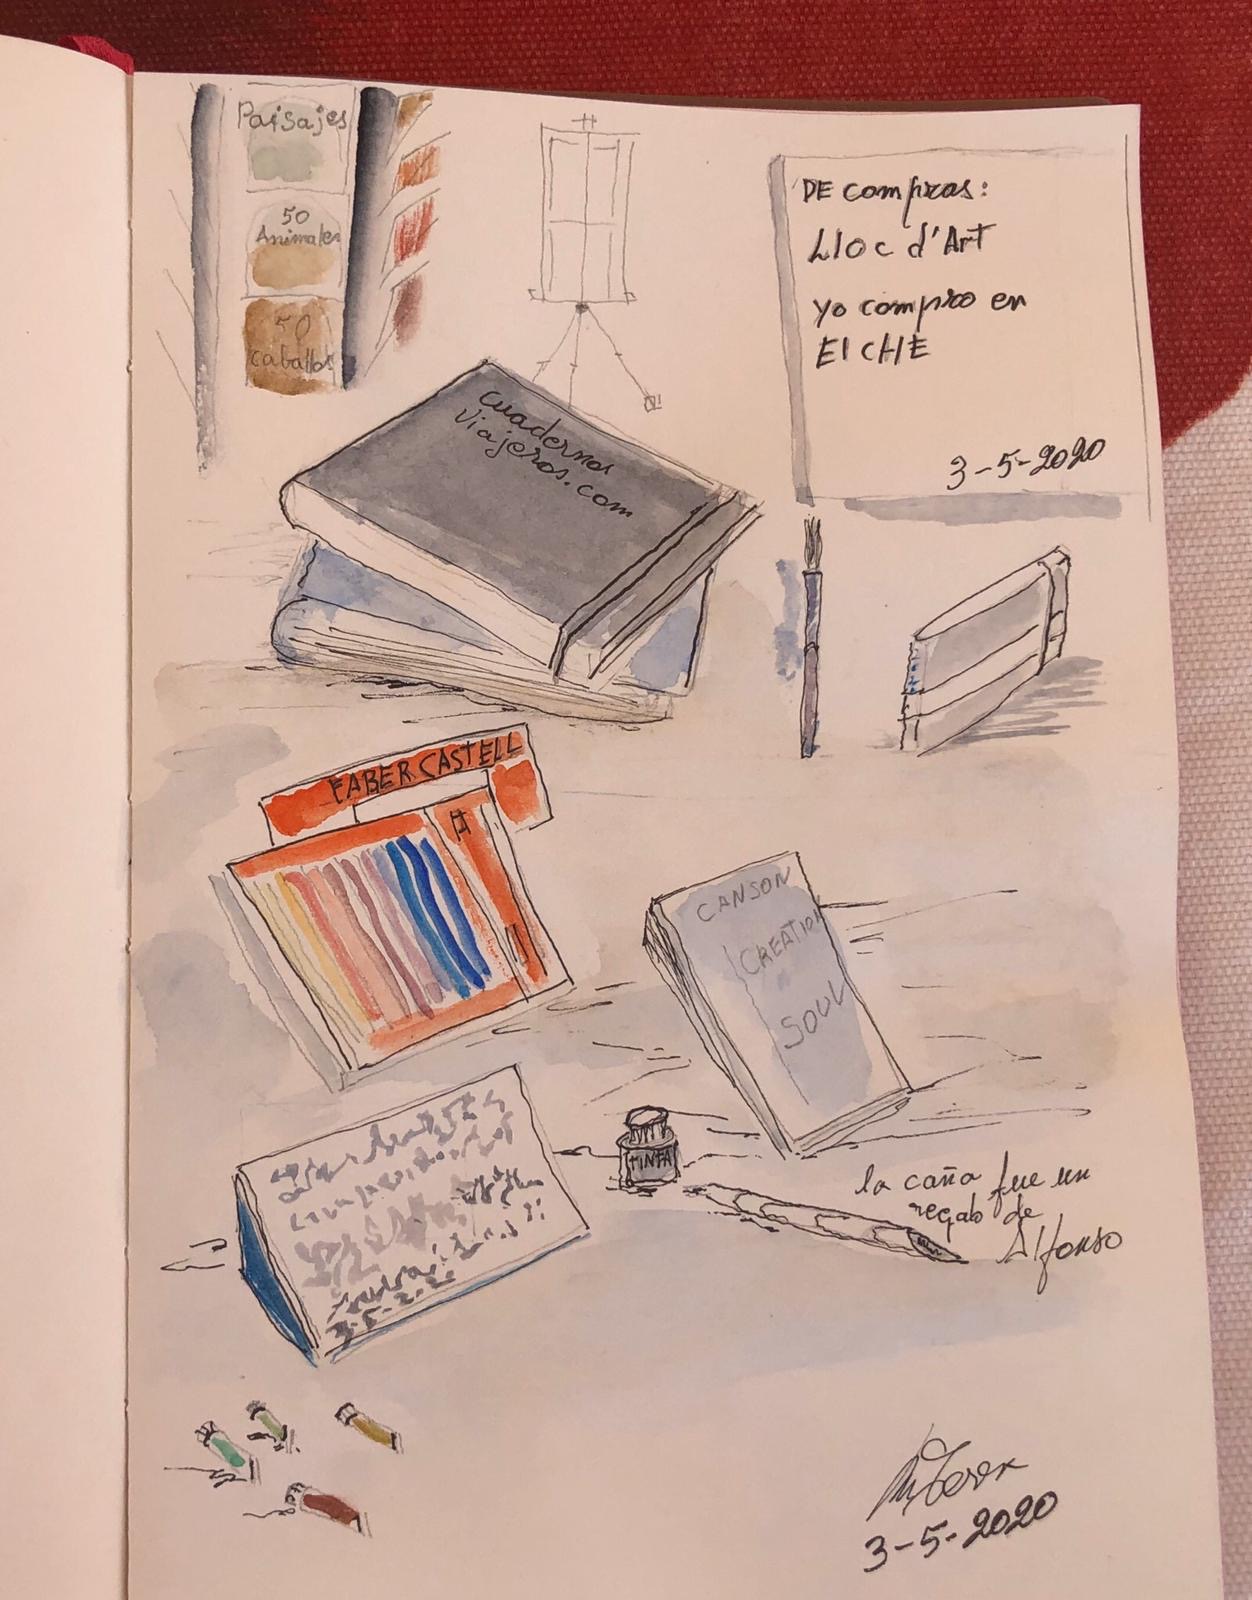 Paisajes
50
Animales
50
caballos
DE compras:
Lloc d'Art
yo compro en
ElCHE
3-5-2020
cuadernos
viajeros.com
FABER CASTELL
CANSON
CREATION
SOUL
TINTA
la caña fue un
regalo de
Alfonso
3-5-2020
3-5-2020